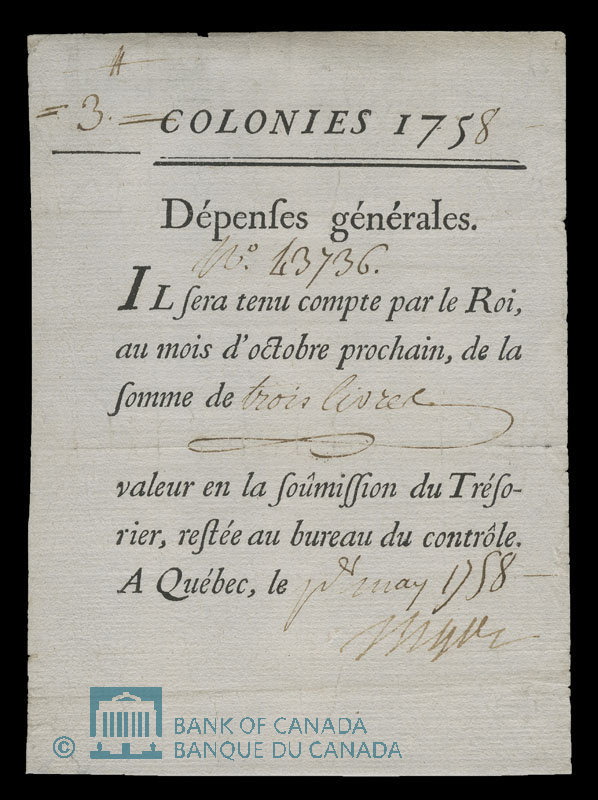 = 3. = COLONIES 1758
Dépenſes générales.
N.º 43736.
IL ſera tenu compte par le Roi,
au mois d'octobre prochain, de la
ſomme de trois livres
valeur en la ſoûmiſſion du Tréſo-
rier, reſtée au bureau du contrôle.
A Québec, le may 1758
© BANK OF CANADA
BANQUE DU CANADA